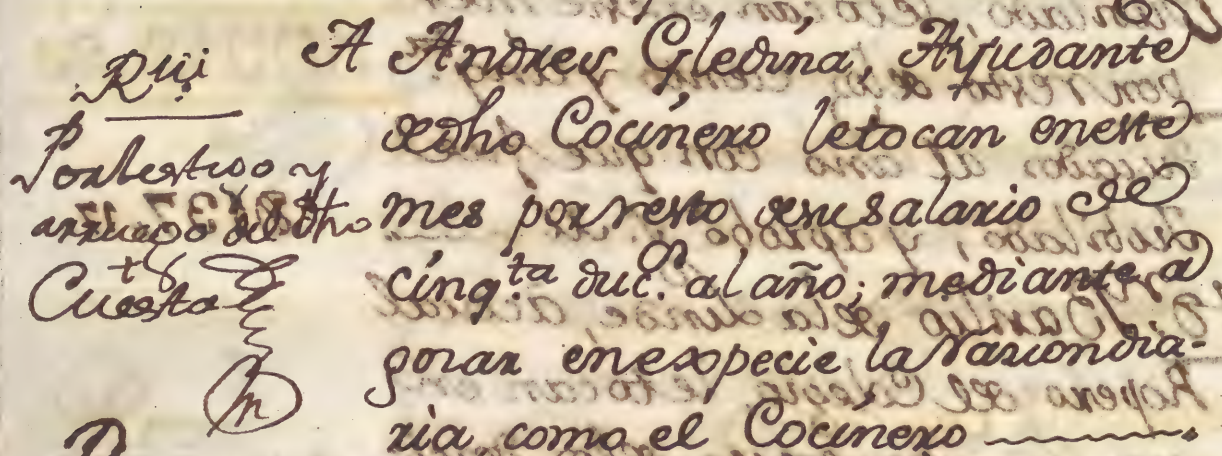 Rví
Portestigo y
arruego del dho
Cuesta
A Andres Gledina, Ayudante
dedho Cocinero letocan eneste
mes por resto desu salario de
cinq.ta duc.s al año; mediante a
gozar enexpecie la racion dia-
ria, como el Cocinero